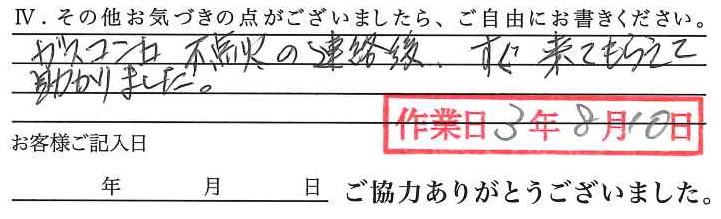 Ⅳ．その他お気づきの点がございましたら、ご自由にお書きください。
ガスコンロ 不点火の連絡後、すぐ来てもらえて
助かりました。
作業日 3年 8月10日
お客様ご記入日
年 月 日 ご協力ありがとうございました。